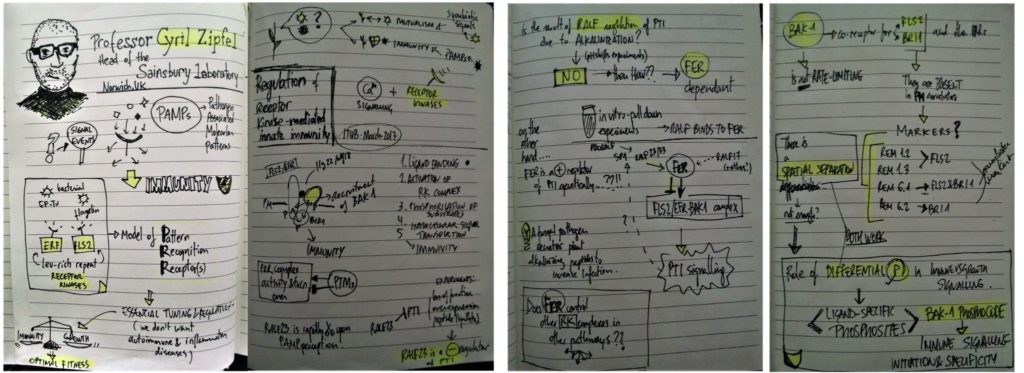 Professor Cyril Zipfel
Head of the
Sainsbury Laboratory
Norwich, UK
PAMPs
Pathogen
Associated
Molecular
Patterns
SIGNAL
EVENTS
IMMUNITY
bacterial
EF-TU
flagellin
EFR
FLS2
Leu-rich repeat
RECEPTOR
KINASES
Model of Pattern
Recognition
Receptor(s)
ESSENTIAL TUNING & REGULATION
(we don't want
autoimmune & inflammatory
diseases)
IMMUNITY
GROWTH
OPTIMAL FITNESS
?
MUTUALISM
Symbiotic
Signals
IMMUNITY
PAMPs
Regulation of
Receptor
Kinase-mediated
innate immunity
Ca2+
SIGNALLING
+ RECEPTOR
KINASES
ITQB - March 2017
flg22
recruitment
of BAK1
BIK1
IMMUNITY
1. LIGAND BINDING
2. ACTIVATION OF
RK COMPLEX
3. PHOSPHORYLATION OF
SUBSTRATES
4. INTRACELLULAR SIGNAL
TRANSDUCTION
5. IMMUNITY
PRR complex
activity & turn
over
PTMs
RALF23 is rapidly
upon
PAMP perception.
RALF23
PTI
EXPERIMENTS:
loss of function
overexpression
peptide
RALF23 is a ⊖ regulator
of PTI
Is the result of RALF regulation of PTI
due to ALKALINIZATION?
(pH shifts experiments)
NO
then How??
FER
dependant
in vitro pull down
experiments
RALF BINDS TO FER
on the
other
hand....
FER is a ⊕ regulator
of PTI specifically
??!!
S1P
RALF23/33
RALF17
FER
FLS2 | EFR-BAK1 complex
A fungal pathogen
secretes plant
alkalinizing peptides to
increase infection.
PTI Signalling
Does FER control
other RK complexes in
other pathways??
BAK-1
co-receptor for
FLS2
BRI1
and other PRRs
is not RATE-LIMITING
They are PRESENT
in PM nanoclusters
There is
a
SPATIAL SEPARATION
not enough?
MARKERS?
REM 1.2
REM 1.3
FLS2
REM 6.1
FLS2 & BRI1
REM 6.2
BRI1
BOTH WORK
Role of DIFFERENTIAL P in IMMUNE & GROWTH
SIGNALLING.
LIGAND-SPECIFIC
PHOSPHOSITES
BAK-1 PHOSPHOCODE
IMMUNE SIGNALLING
INITIATION & SPECIFICITY